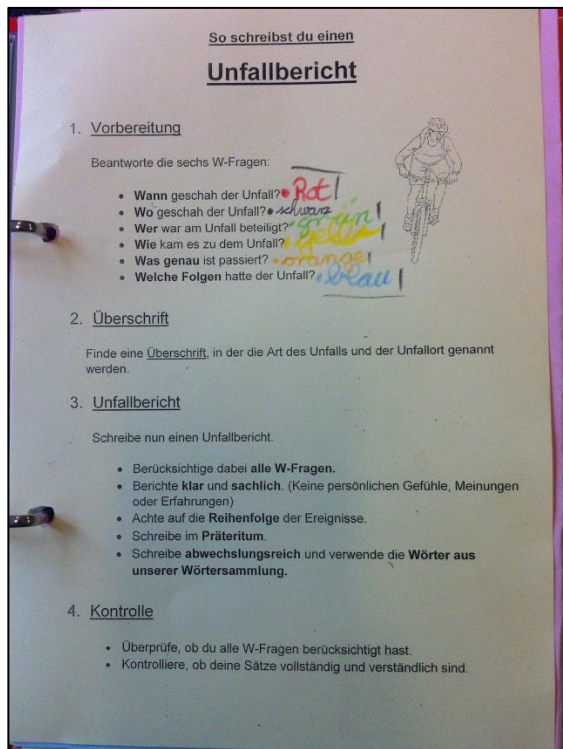 So schreibst du einen
Unfallbericht
1. Vorbereitung
Beantworte die sechs W-Fragen:
• Wann geschah der Unfall? • Rot
• Wo geschah der Unfall? • schwarz
• Wer war am Unfall beteiligt? • grün
• Wie kam es zu dem Unfall? • gelb
• Was genau ist passiert? • orange
• Welche Folgen hatte der Unfall? • blau
2. Überschrift
Finde eine Überschrift, in der die Art des Unfalls und der Unfallort genannt
werden.
3. Unfallbericht
Schreibe nun einen Unfallbericht.
• Berücksichtige dabei alle W-Fragen.
• Berichte klar und sachlich. (Keine persönlichen Gefühle, Meinungen
oder Erfahrungen)
• Achte auf die Reihenfolge der Ereignisse.
• Schreibe im Präteritum.
• Schreibe abwechslungsreich und verwende die Wörter aus
unserer Wörtersammlung.
4. Kontrolle
• Überprüfe, ob du alle W-Fragen berücksichtigt hast.
• Kontrolliere, ob deine Sätze vollständig und verständlich sind.